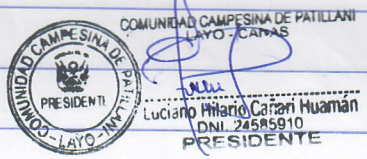 COMUNIDAD CAMPESINA DE PATILLANI
LAYO - CANAS
COMUNIDAD CAMPESINA DE PATILLANI
PRESIDENTE
- LAYO -
Luciano Hilario Cañari Huamán
DNI. 24585910
PRESIDENTE